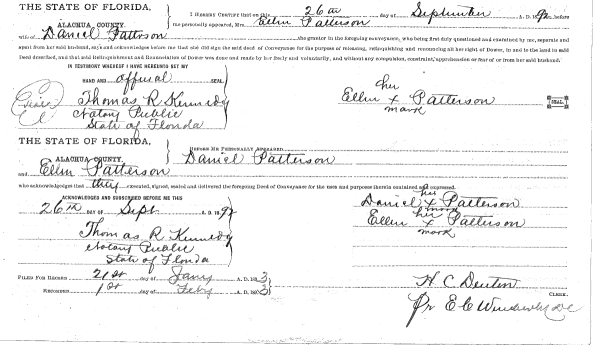 THE STATE OF FLORIDA,
ALACHUA COUNTY.
I HEREBY CERTIFY that on this 26th day of September A. D. 1892, before
me personally appeared, Mrs. Ellen Patterson
wife of Daniel Patterson the grantor in the foregoing conveyance, who being first duly questioned and examined by me, separate and
apart from her said husband, says and acknowledges before me that she did sign the said deed of Conveyance for the purpose of releasing, relinquishing and renouncing all her right of Dower, in and to the land in said
Deed described, and that said Relinquishment and Renunciation of Dower was done and made by her freely and voluntarily, and without any compulsion, constraint, apprehension or fear of or from her said husband.
IN TESTIMONY WHEREOF I HAVE HEREUNTO SET MY
HAND AND official SEAL.
Thomas R Kennedy
Notary Public
State of Florida
her
Ellen x Patterson
mark
SEAL
THE STATE OF FLORIDA,
ALACHUA COUNTY.
BEFORE ME PERSONALLY APPEARED Daniel Patterson
and Ellen Patterson
who acknowledges that they executed, signed, sealed and delivered the foregoing Deed of Conveyance for the uses and purposes therein contained and expressed.
ACKNOWLEDGED AND SUBSCRIBED BEFORE ME THIS
26th DAY OF Sept A. D. 1892
Thomas R Kennedy
Notary Public
State of Florida
his
Daniel x Patterson
mark
her
Ellen x Patterson
mark
FILED FOR RECORD 21st day of Jany A. D. 1893
RECORDED 1st day of Feby A. D. 1893
H. C. Denton
CLERK.
Pr E C